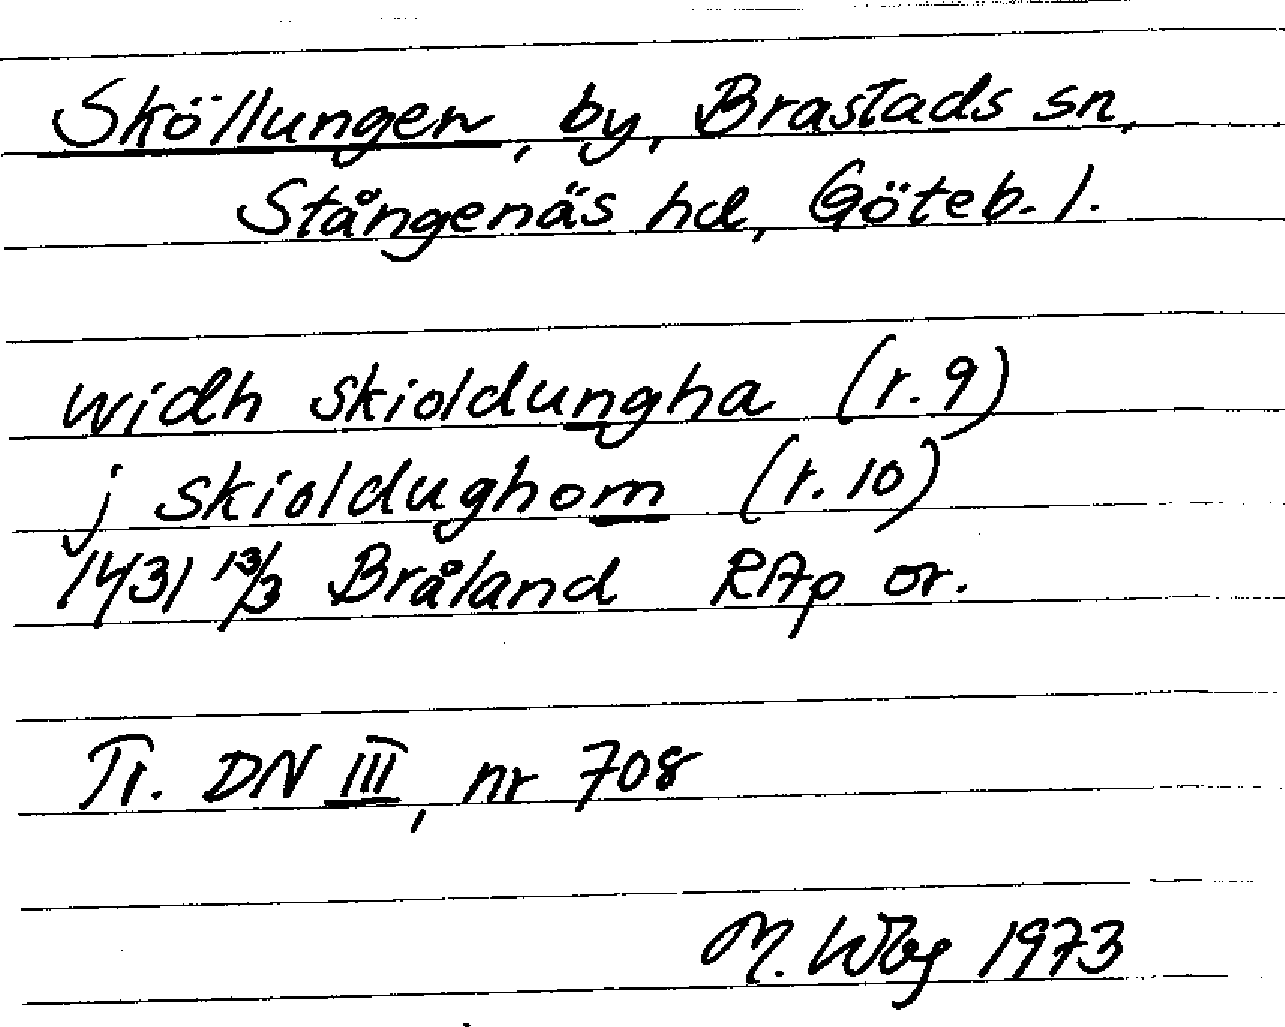 Sköllungen, by, Brastads sn,
Stångenäs hd, Göteb. l.
widh skioldungha (r. 9)
j skioldughom (r. 10)
1431 13/3 Bråland RAp or.
Tr. DN III, nr 708
M. Wbg 1973